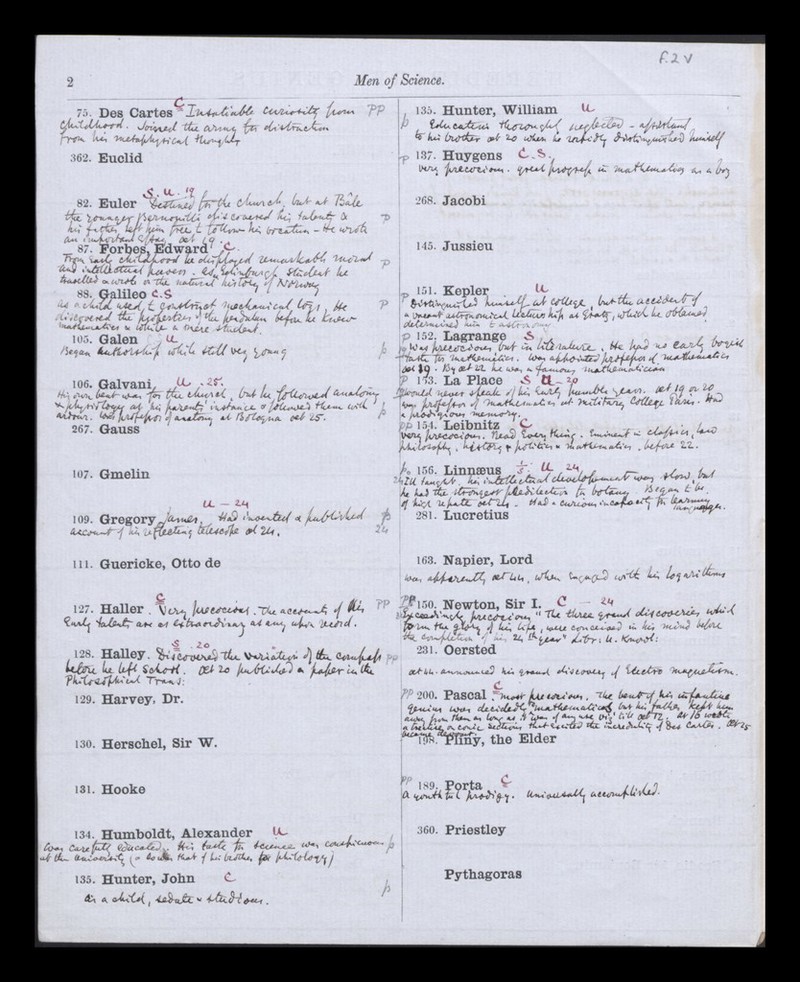 f.2v
2
Men of Science.
75. Des Cartes C Insatiable curiosity from PP
childhood. Joined the army for distraction
from his metaphysical thoughts
362. Euclid
S. U. 19
82. Euler Destined for the church, but at Bâle
the younger Bernouilli discovered his talents & p
his father left him free to follow his vocation - He wrote
an important Essay aet 19.
87. Forbes, Edward C.
From early childhood he displayed remarkable moral p
and intellectual powers. As Edinburgh student he
travelled & wrote on the natural history of Norway
88. Galileo C.S
as a child used to construct mechanical toys. He p
discovered the properties of the pendulum before he knew
mathematics & while a mere student.
105. Galen U
Began authorship while still very young p
106. Galvani U. 25.
His own bent was for the church, but he followed anatomy
& physiology at his parents instance & followed them with p
ardour. Was professor of anatomy at Bologna aet 25.
267. Gauss
107. Gmelin
U - 24
109. Gregory James. Had invented & published p
account of his reflecting telescope aet 24. 24
111. Guericke, Otto de
C
127. Haller. Very precocious. The accounts of his PP
Early talents are as extraordinary as any upon record.
S. 20
128. Halley. Discovered the variation of the compass pp
before he left school. aet 20 published a paper in the
Philosophical Trans:
129. Harvey, Dr.
130. Herschel, Sir W.
131. Hooke
134. Humboldt, Alexander U
Was carefully educated. His taste for science was conspicuous p
at the University (as was that of his brother for philology)
135. Hunter, John C
p
As a child, sedate & studious.
135. Hunter, William U
p Education thoroughly neglected - assistant
to his brother aet 20 when he rapidly distinguished himself
p 137. Huygens C.S.
very precocious. great progress in mathematics as a boy
268. Jacobi
145. Jussieu
151. Kepler U
p Distinguished himself at college, but the accident of
a vacant astronomical lectureship at Gratz, which he obtained,
determined him to astronomy
p 152. Lagrange S
Was precocious but in literature. He had no early boyish
taste for mathematics. Was appointed professor of mathematics
aet 19. By aet 22 he was a famous mathematician
p 153. La Place S U - 20
would never speak of his early humble years. aet 19 or 20
was professor of mathematics at military College Paris. Had
a prodigious memory.
pp 154. Leibnitz C
very precocious. Read Every thing. Eminent in classics, law
philosophy, history & politics & mathematics, before 22.
p. 156. Linnæus U 24
24 Ill taught. his intellectual development was slow, but
he had the strongest predilection for botany Began to be
of high repute aet 24. Had a curious incapacity for learning
languages.
281. Lucretius
163. Napier, Lord
was apparently aet 44, when engaged with his logarithms
PP 150. Newton, Sir I. C - 24
Exceedingly precocious "The three grand discoveries which
form the glory of his life, were conceived in his mind before
the completion of his 24th year" Libr: U. Knowl:
231. Oersted
aet 44. announced his grand discovery of Electro magnetism.
PP 200. Pascal C most precocious. The bent of his infantine
genius was decidedly mathematical, but his father kept him
away from them as long as it was of any use viz: till aet 12. At 16 wrote
a treatise on conic sections that excited the incredulity of Des Cartes. aet 25
became devout.
198. Pliny, the Elder
PP 189. Porta C
A youthful prodigy. Universally accomplished.
360. Priestley
Pythagoras